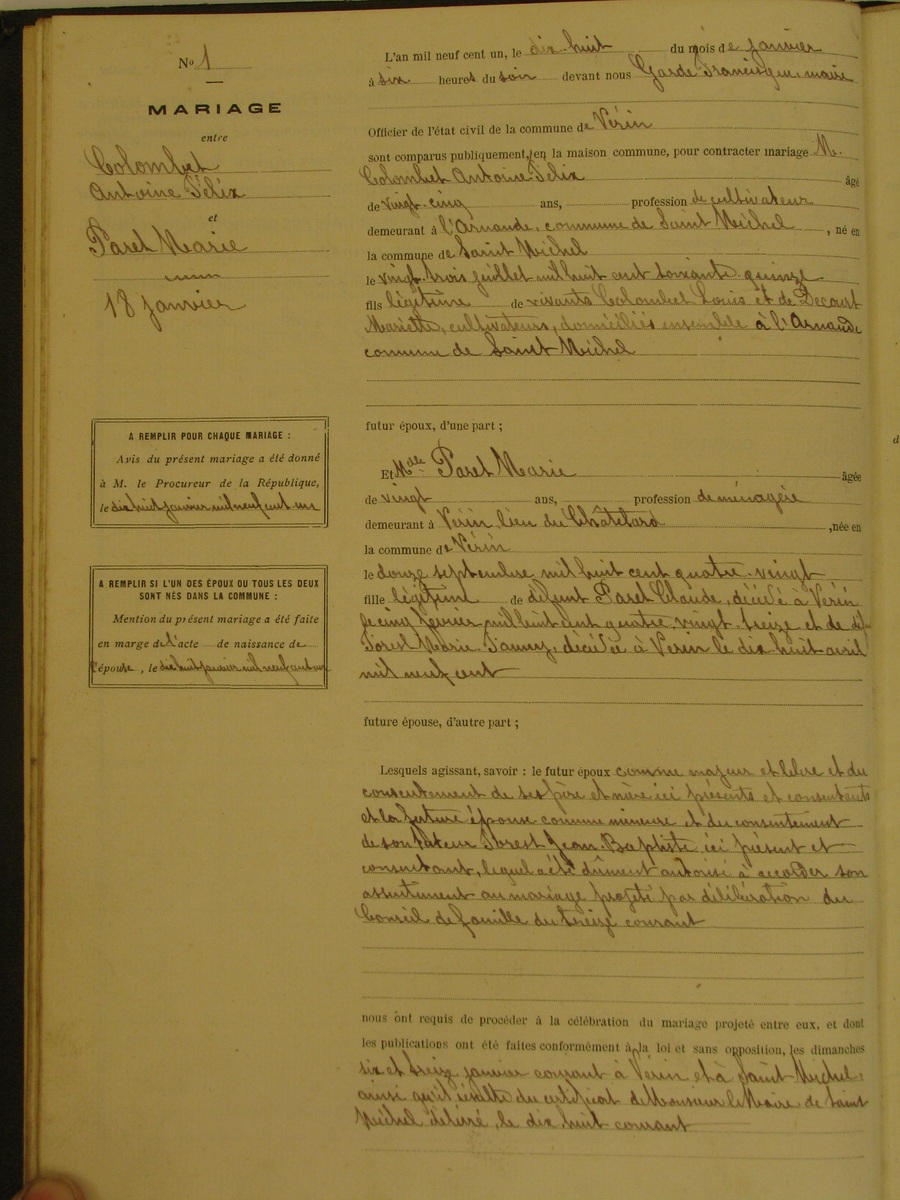 No 1
MARIAGE
entre
Colombet
Antoine Félix
et
Paret Marie
18 janvier
A REMPLIR POUR CHAQUE MARIAGE :
Avis du présent mariage a été donné
à M. le Procureur de la République,
le dix huit janvier mil neuf cent un
A REMPLIR SI L'UN DES ÉPOUX OU TOUS LES DEUX
SONT NÉS DANS LA COMMUNE :
Mention du présent mariage a été faite
en marge de l'acte de naissance de
l'épouse, le dix huit janvier mil neuf cent un
L'an mil neuf cent un, le dix-huit du mois de janvier
à six heures du soir devant nous Garde Francisque, maire
Officier de l'état civil de la commune de Vérin
sont comparus publiquement, en la maison commune, pour contracter mariage M.
Colombet Antoine Félix âgé
de vingt-cinq ans, profession de cultivateur
demeurant à l'Arnaude, commune de Saint Michel, né en
la commune de Saint Michel
le vingt-trois juillet mil huit cent soixante-quinze
fils légitime de vivants Colombet Louis et de Decourt
Mariette, cultivateurs, domiciliés ensemble à l'Arnaude
commune de Saint Michel
futur époux, d'une part ;
Et Mlle Paret Marie âgée
de vingt ans, profession de ménagère
demeurant à Vérin, lieu du Châtelard, née en
la commune de Vérin
le douze septembre mil huit cent quatre-vingt
fille légitime de défunt Paret Claude, décédé à Vérin
le cinq février mil huit cent quatre-vingt-treize et de
Forest Marie Fanny, décédée à Vérin le dix huit avril
mil neuf cent
future épouse, d'autre part ;
Lesquels agissant, savoir : le futur époux comme majeur et libre et du
consentement de ses père et mère ici présents et consentants
et la future épouse comme mineure et du consentement
de son tuteur Forest Jean-Baptiste ici présent et
consentant, lequel a été dûment autorisé à accorder son
assentiment au mariage projeté par délibération du
Conseil de famille du treize courant
nous ont requis de procéder à la célébration du mariage projeté entre eux, et dont
les publications ont été faites conformément à la loi et sans opposition, les dimanches
six et treize janvier courant à Vérin et à Saint Michel,
ainsi qu'il résulte du certificat de Monsieur le Maire de Saint
Michel délivré le dix huit courant